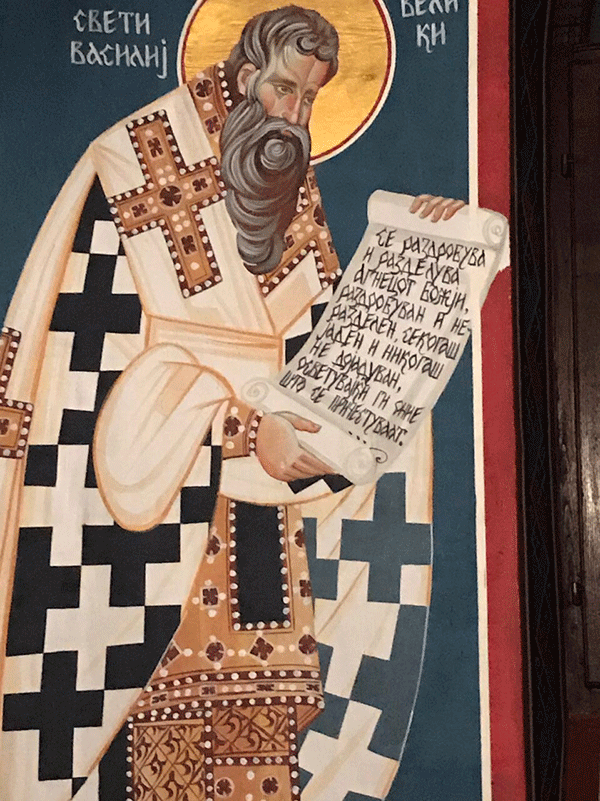 СВЕТИ
ВАСИЛИЈ
ВЕЛИ
КИ
СЕ РАЗДРОБУВА
И РАЗДЕЛУВА
АГНЕЦОТ БОЖЈИ,
РАЗДРОБУВАН И НЕ-
РАЗДЕЛЕН, СЕКОГАШ
ЈАДЕН И НИКОГАШ
НЕ ДОЈАДУВАН,
ОСВЕТУВАЈЌИ ГИ ОНИЕ
ШТО СЕ ПРИЧЕСТУВААТ.
...